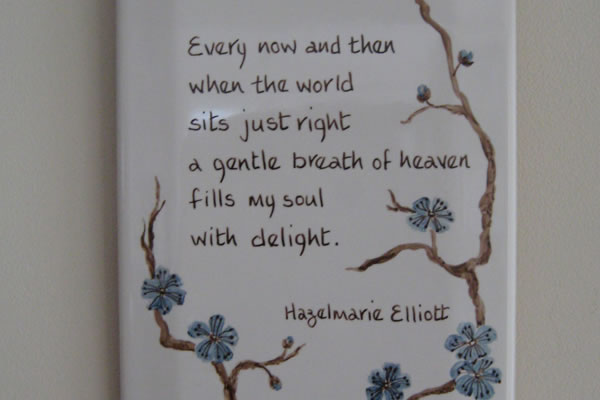 Every now and then
when the world
sits just right
a gentle breath of heaven
fills my soul
with delight.
Hazelmarie Elliott